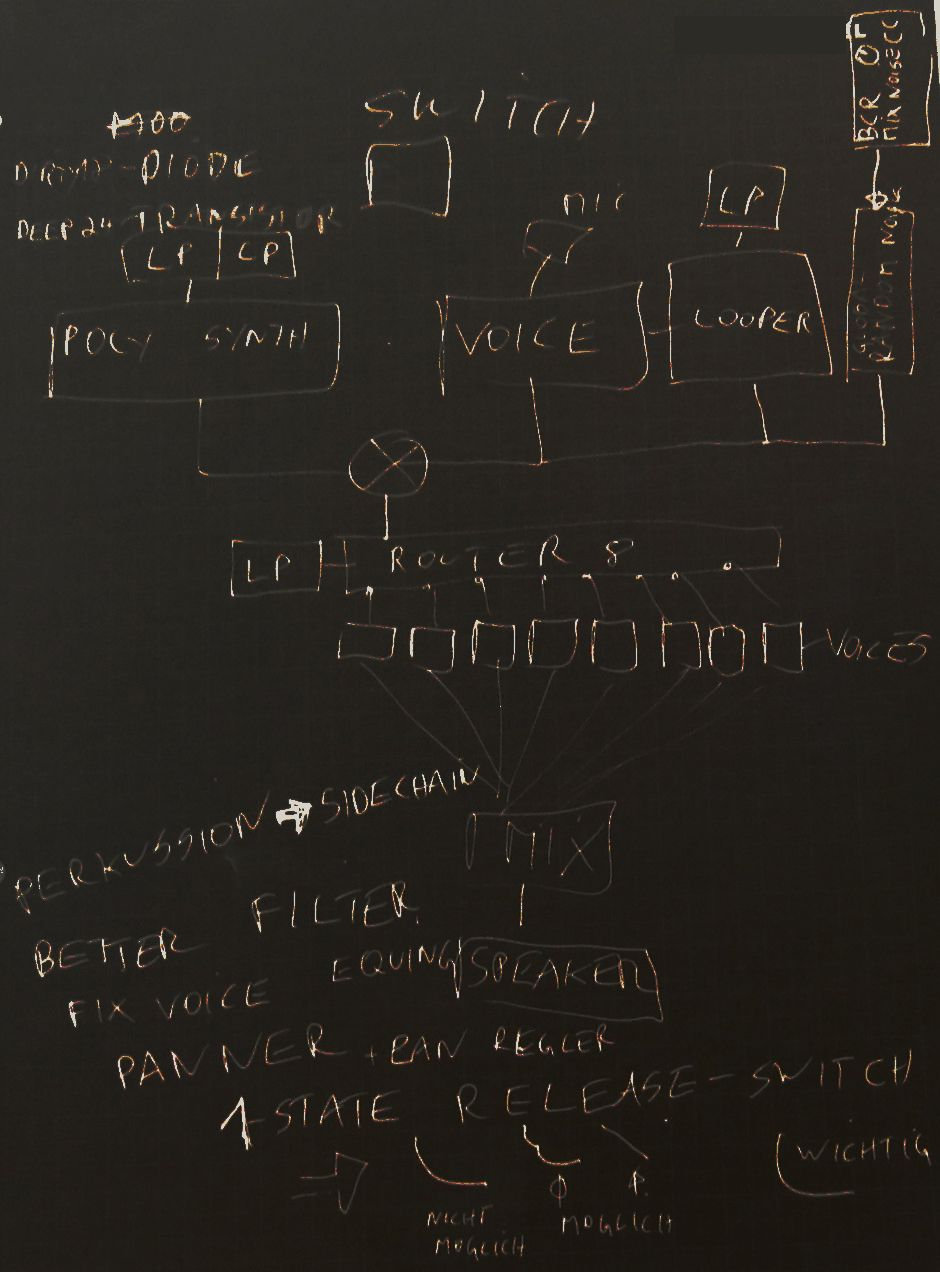 SWITCH
BCR OF
MIX NOISE CC
-DIODE
TRANSISTOR
LP LP
MIC
LP
POLY SYNTH
VOICE
LOOPER
RANDOM NOISE
LP
ROUTER 8
VOICES
PERKUSSION → SIDECHAIN
MIX
BETTER FILTER
FIX VOICE EQUING
SPEAKER
PANNER + PAN REGLER
1-STATE RELEASE-SWITCH
WICHTIG
NICHT
MÖGLICH
MÖGLICH